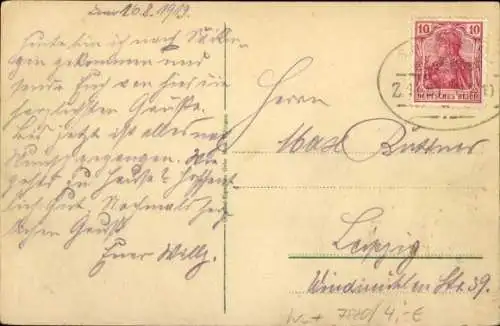 den 20.8.1913.
Heute bin ich nach
gen gekommen und
sende Euch von hier die
herzlichsten Grüsse.
Bis jetzt ist alles nach
Wunsch gegangen. Wie
gehts zu Hause? Hoffent-
lich gut. Nochmals herz-
lichen Gruß
Euer Willy.
10 10
DEUTSCHES REICH
Herrn
Max Büttner
Leipzig
Windmühlen Str. 39.
4,- €